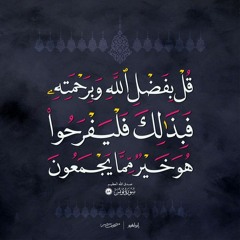 قُلْ بِفَضْلِ ٱللَّهِ وَبِرَحْمَتِهِۦ
فَبِذَٰلِكَ فَلْيَفْرَحُوا۟
هُوَ خَيْرٌ مِّمَّا يَجْمَعُونَ
صدق الله العظيم
سورة يونس